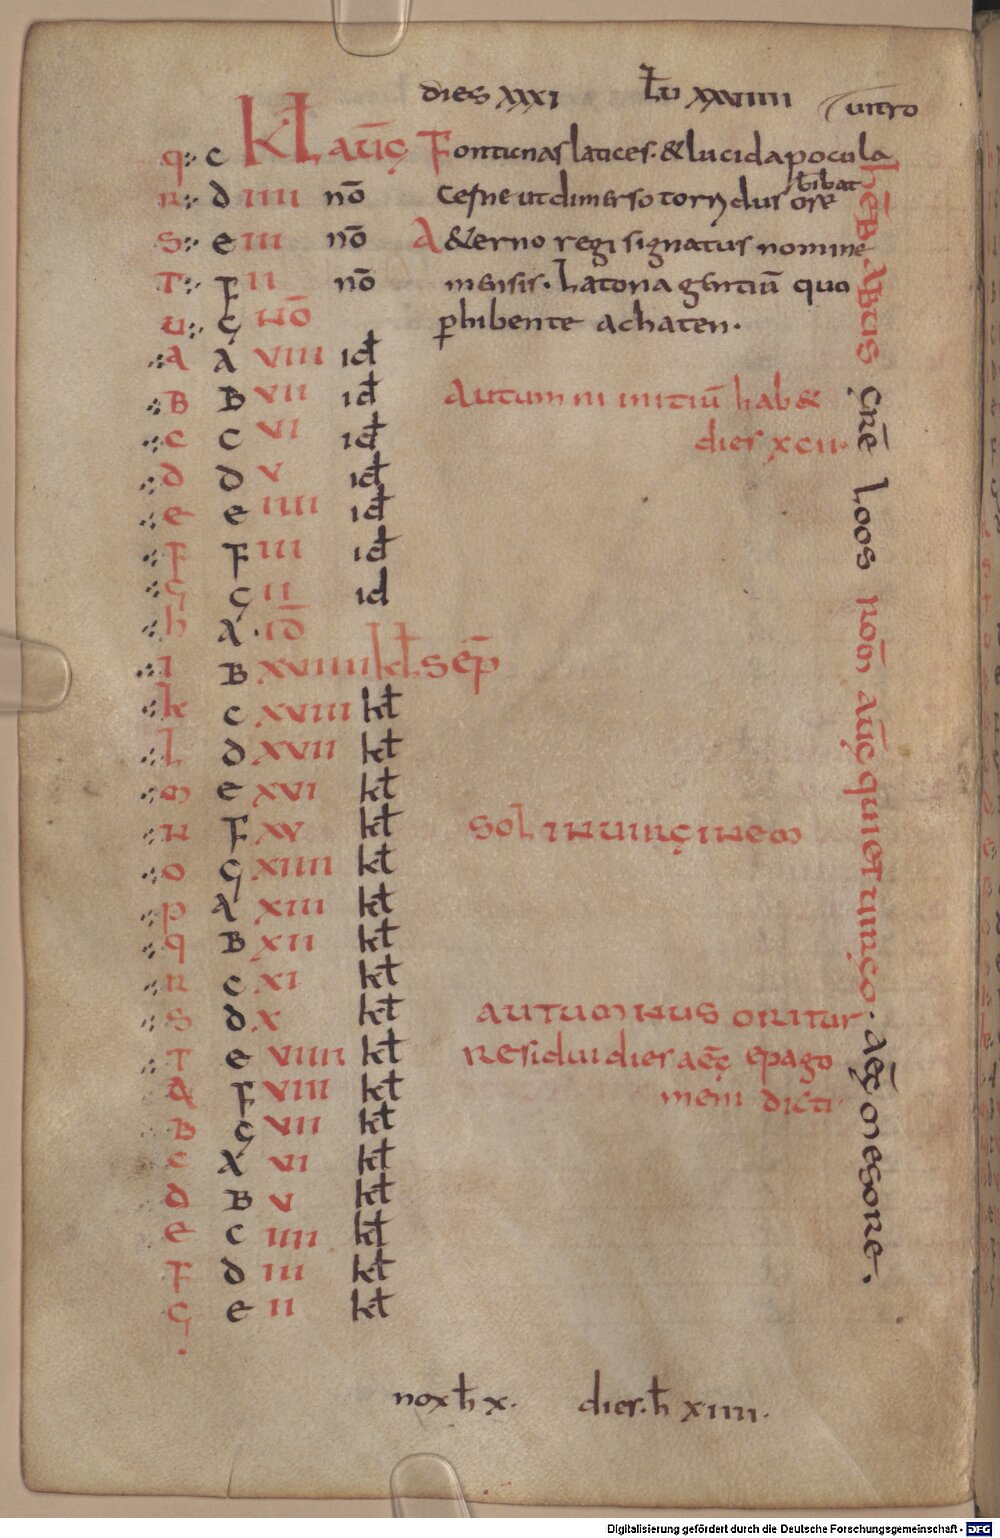 dies XXXI Łu XXVIIII uitro
q c KL AUG Fontanas latices. & lucida pocula
R d IIII nō Cesne ut dimerso torridus ore bibat
S e III nō A &erno regi signatus nomine
T F II nō mensis. Latona genitū quo
u G NO phibente achaten.
A A VIII id
B B VII id Autumni initiū hab&
C C VI id dies xcii.
d d V id
e e IIII id
F F III id
G G II id
h A ID
I B XVIIII kl SEP
k C XVIII kł
L d XVII kł
m e XVI kł
N F XV kł Sol in uirginem
o G XIIII kł
p A XIII kł
q B XII kł
R C XI kł
S d X kł Autumnus oritur
T e VIIII kł Residui dies aeg epago
A F VIII kł meni dicti
B G VII kł
C A VI kł
d B V kł
e C IIII kł
F d III kł
G e II kł
hēb Abus grē Loos Rom̄ Aug quinet uirgo. Aeg mesore.
nox h x. dies. h xiiii.
Digitalisierung gefördert durch die Deutsche Forschungsgemeinschaft - DFG